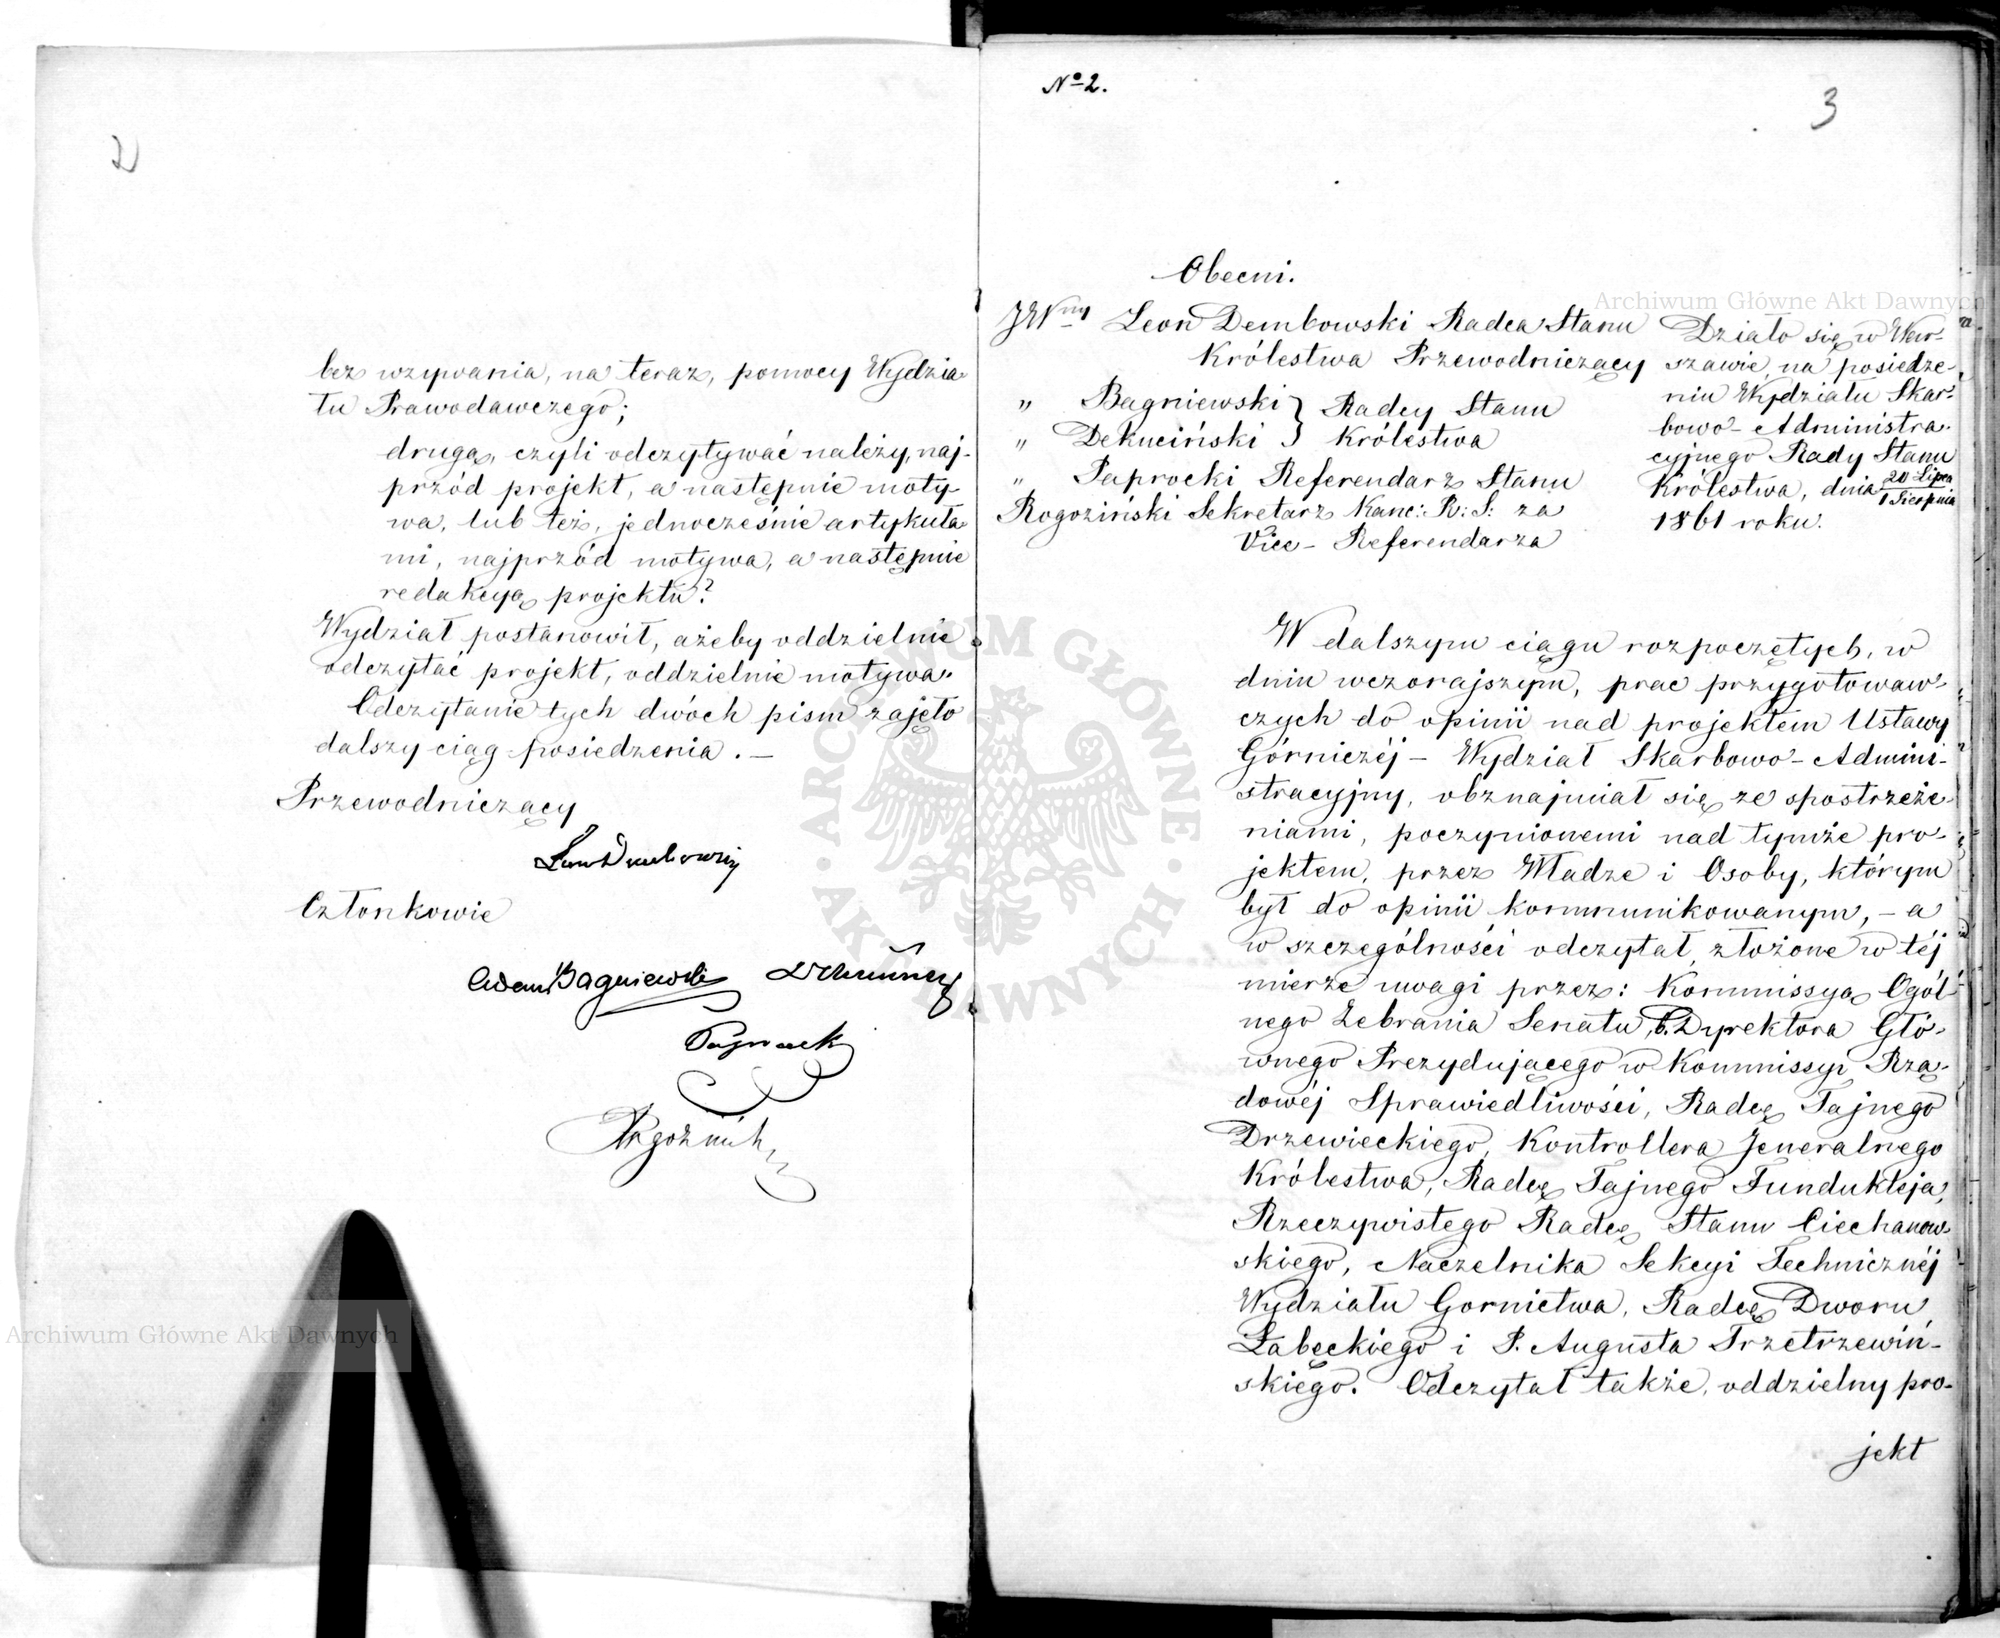 2
bez wzywania, na teraz, pomocy Wydzia-
łu Prawodawczego;
druga, czyli odczytywać należy, naj-
przód projekt, a następnie moty-
wa, lub też, jednocześnie artykuła-
mi, najprzód motywa, a następnie
redakcyą projektu?
Wydział postanowił, ażeby oddzielnie
odczytać projekt, oddzielnie motywa.
Odczytanie tych dwóch pism zajęło
dalszy ciąg posiedzenia. —
Przewodniczący
Leon Dembowski
Członkowie
Adam Bagniewski
Paprocki
Rogoziński
Nº 2.
3
Obecni.
JWny Leon Dembowski Radca Stanu
Królestwa Przewodniczący
„ Bagniewski } Radcy Stanu
„ Dekuciński } Królestwa
„ Paprocki Referendarz Stanu
Rogoziński Sekretarz Kanc: R: S: za
Vice-Referendarza
Działo się w War-
szawie, na posiedze-
niu Wydziału Skar-
bowo-Administra-
cyjnego Rady Stanu
Królestwa, dnia 20 Lipca / 1 Sierpnia
1861 roku.
W dalszym ciągu rozpoczętych, w
dniu wczorajszym, prac przygotowaw-
czych do opinii nad projektem Ustawy
Górniczéj — Wydział Skarbowo-Admini-
stracyjny, obznajmiał się ze spostrzeże-
niami, poczynionemi nad tymże pro-
jektem, przez Władze i Osoby, którym
był do opinii kommunikowanym, — a
w szczególności odczytał, złożone w téj
mierze uwagi przez: Kommissyą Ogól-
nego Zebrania Senatu, b. Dyrektora Głó-
wnego Prezydującego w Kommissyi Rzą-
dowéj Sprawiedliwości, Radcę Tajnego
Drzewieckiego, Kontrollera Jeneralnego
Królestwa, Radcę Tajnego Fundukleja,
Rzeczywistego Radcę Stanu Ciechanow-
skiego, Naczelnika Sekcyi Technicznéj
Wydziału Gornictwa, Radcę Dworu
Łabęckiego i P. Augusta Trzetrzewiń-
skiego. Odczytał także, oddzielny pro-
jekt
Archiwum Główne Akt Dawnych
Archiwum Główne Akt Dawnych
ARCHIWUM GŁÓWNE AKT DAWNYCH